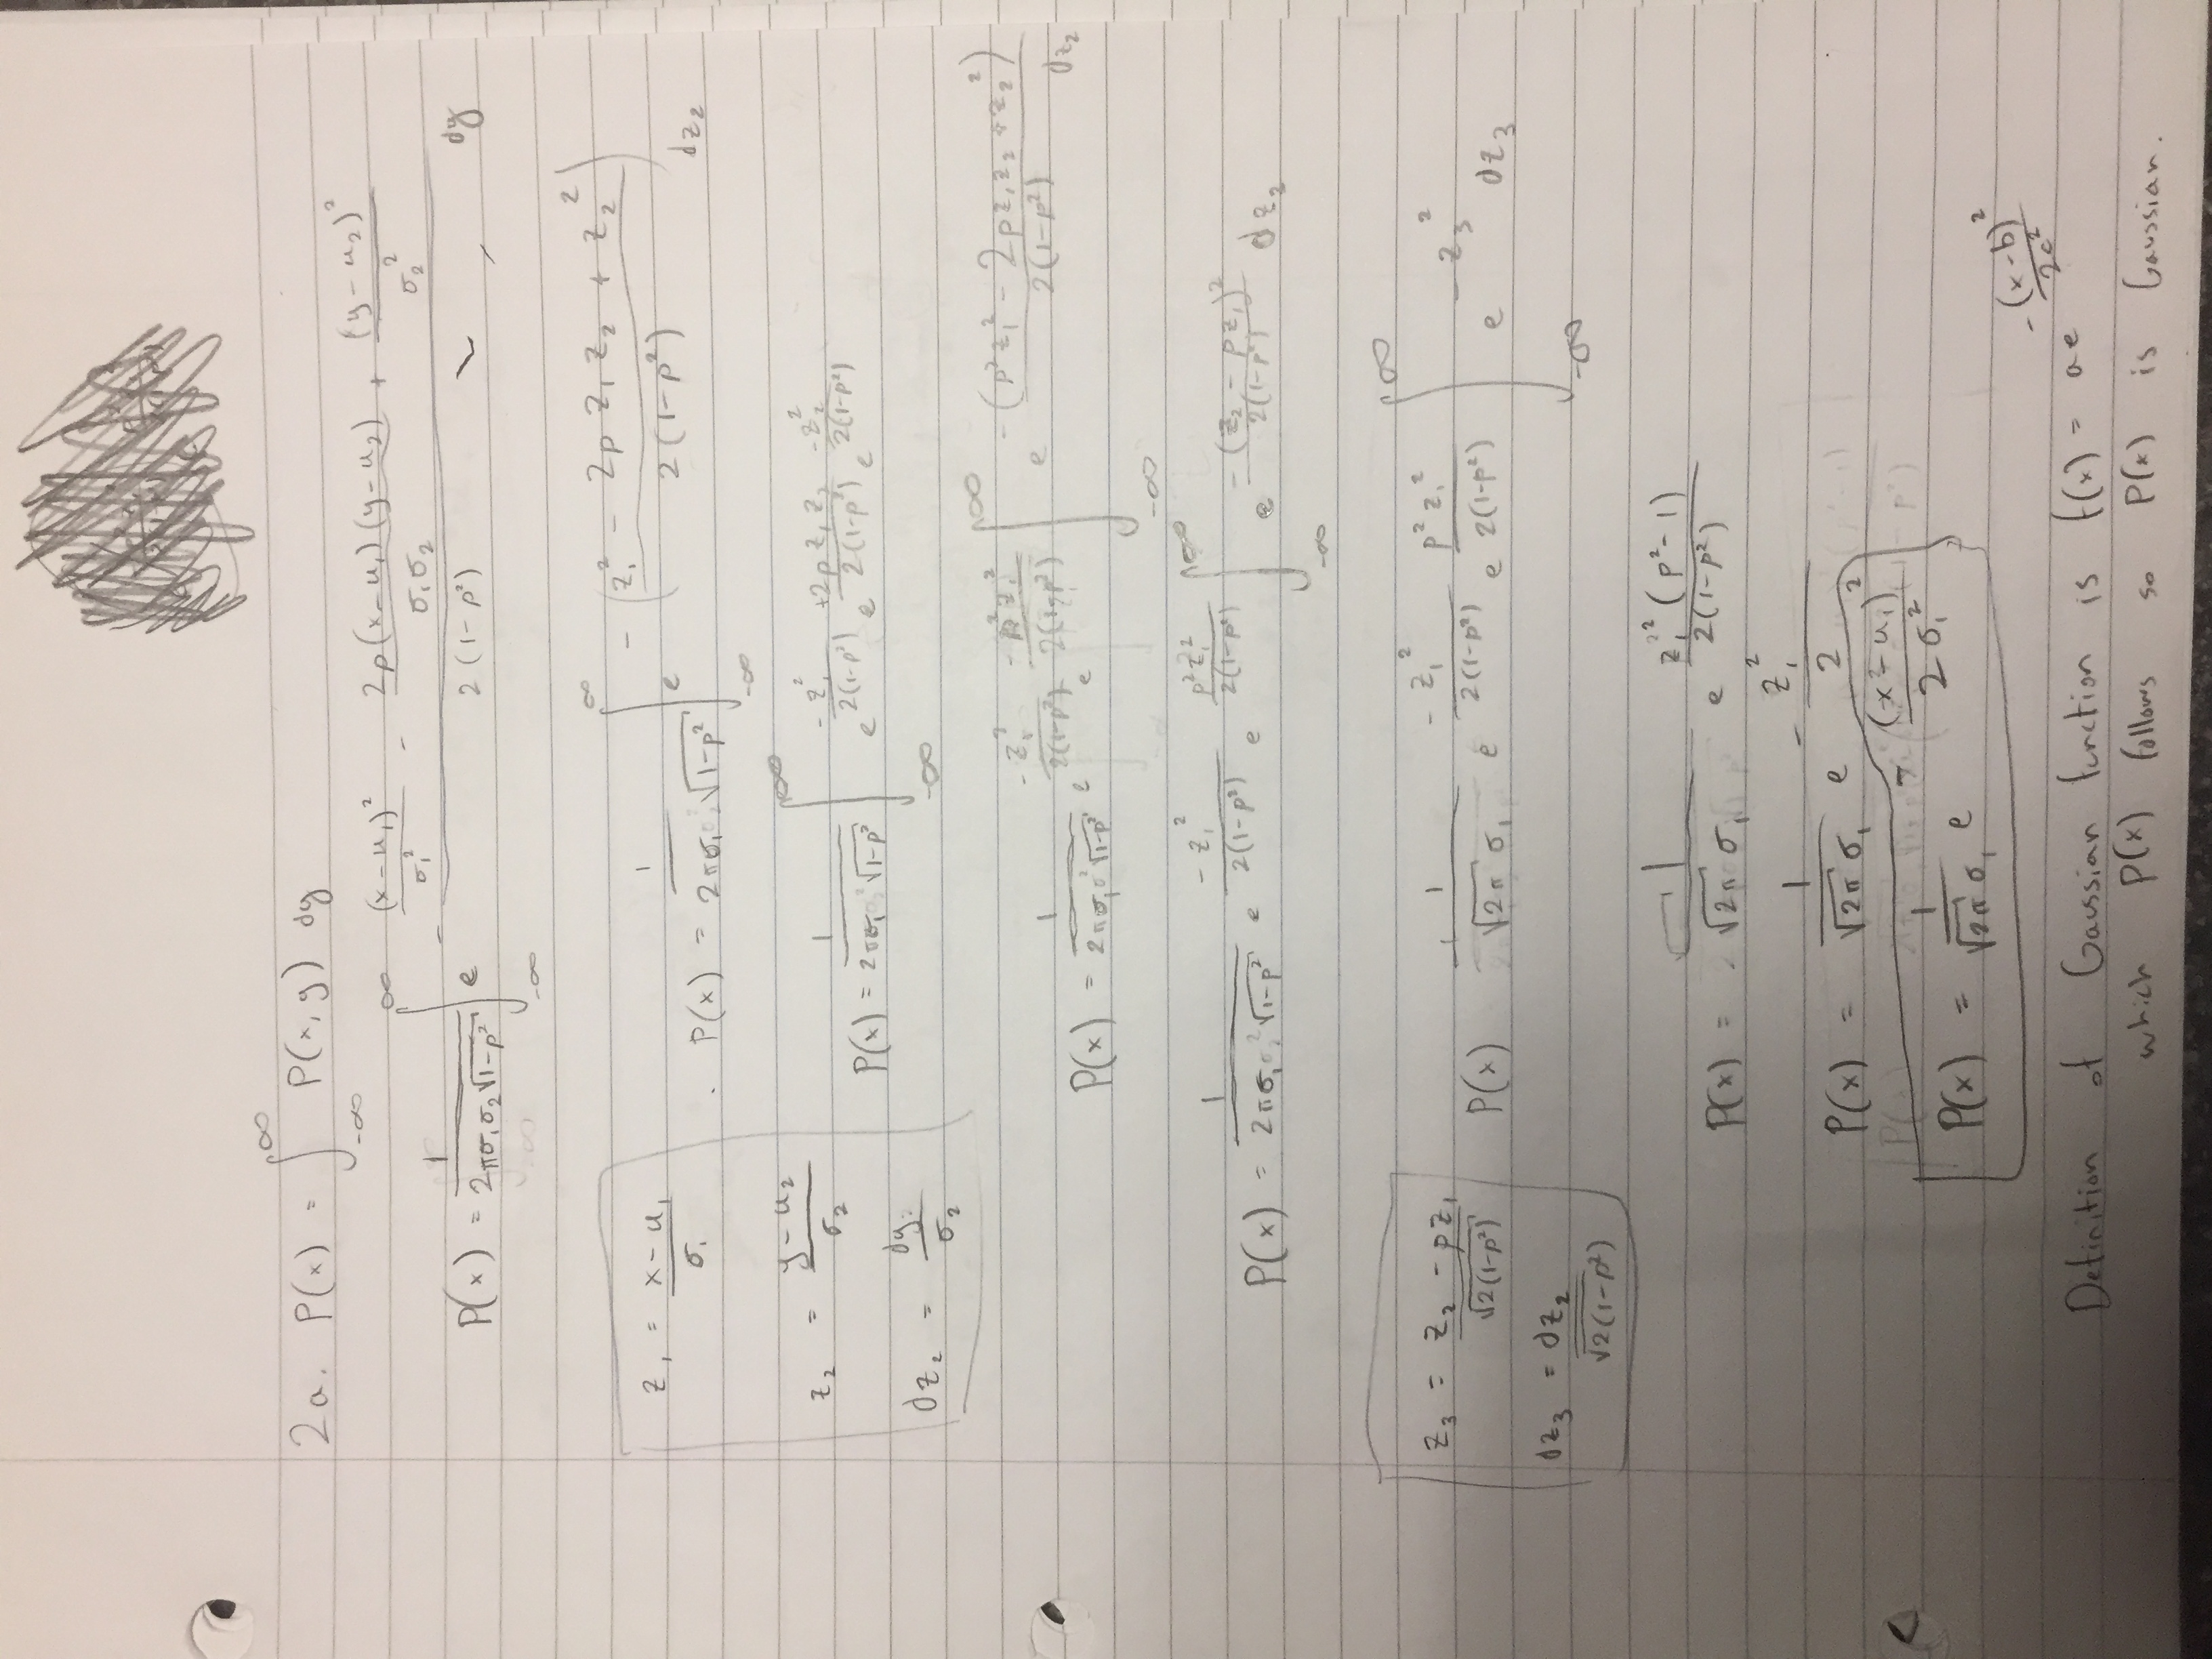 2a. P(x) = ∫_{-∞}^{∞} P(x,y) dy
P(x) = 1/(2πσ₁σ₂√(1-p²)) ∫_{-∞}^{∞} e^{-((x-u₁)²/σ₁² - 2p(x-u₁)(y-u₂)/(σ₁σ₂) + (y-u₂)²/σ₂²)/(2(1-p²))} dy
z₁ = (x-u₁)/σ₁
P(x) = 1/(2πσ₁√(1-p²)) ∫_{-∞}^{∞} e^{-((z₁² - 2pz₁z₂ + z₂²)/(2(1-p²)))} dz₂
z₂ = (y-u₂)/σ₂
P(x) = 1/(2πσ₁√(1-p²)) ∫_{-∞}^{∞} e^{-z₁²/(2(1-p²))} e^{+2pz₁z₂/(2(1-p²))} e^{-z₂²/(2(1-p²))}
dz₂ = dy/σ₂
P(x) = 1/(2πσ₁√(1-p²)) e^{-z₁²/(2(1-p²))} e^{-p²z₁²/(2(1-p²))} ∫_{-∞}^{∞} e^{-(p²z₁² - 2pz₁z₂ + z₂²)/(2(1-p²))} dz₂
P(x) = 1/(2πσ₁√(1-p²)) e^{-z₁²/(2(1-p²))} e^{p²z₁²/(2(1-p²))} ∫_{-∞}^{∞} e^{-(z₂ - pz₁)²/(2(1-p²))} dz₂
z₃ = (z₂ - pz₁)/√(2(1-p²))
P(x) 1/(√(2π) σ₁) e^{-z₁²/(2(1-p²))} e^{p²z₁²/(2(1-p²))} ∫_{-∞}^{∞} e^{-z₃²} dz₃
dz₃ = dz₂/√(2(1-p²))
P(x) = 1/(√(2π) σ₁) e^{z₁²(p²-1)/(2(1-p²))}
P(x) = 1/(√(2π) σ₁) e^{-z₁²/2}
P(x) = 1/(√(2π) σ₁) e^{-(x-u₁)²/(2σ₁²)}
Definition of Gaussian function is f(x) = ae^{-(x-b)²/(2c²)}
which P(x) follows so P(x) is Gaussian.